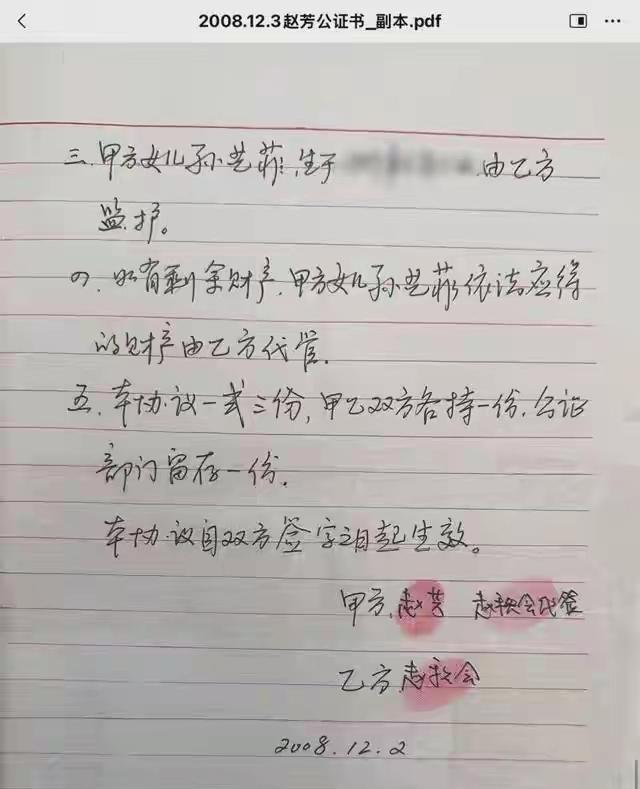 2008.12.3赵芳公证书_副本.pdf
三.甲方女儿孙艺菲,生于 由乙方
监护。
四.如有剩余财产.甲方女儿孙艺菲依法应得
的财产由乙方代管.
五.本协议一式三份,甲乙双方各持一份.公证
部门留存一份.
本协议自双方签字之日起生效。
甲方.赵芳 赵秋会代签
乙方赵秋会
2008.12.2